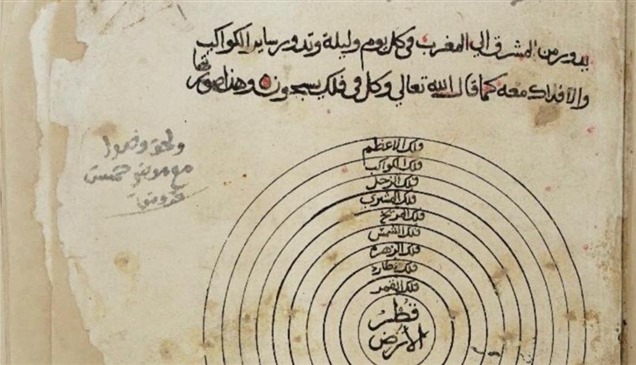 يدور من المشرق الى المغرب في كل يوم وليلة وتدور ساير الكواكب
والافلاك معه كما قال الله تعالى وكل في فلك يسبحون وهذا صورتها
فلك الاعظم
فلك الكواكب
فلك الزحل
فلك المشتري
فلك المريخ
فلك الشمس
فلك الزهره
فلك عطارد
فلك القمر
قطر
الأرض